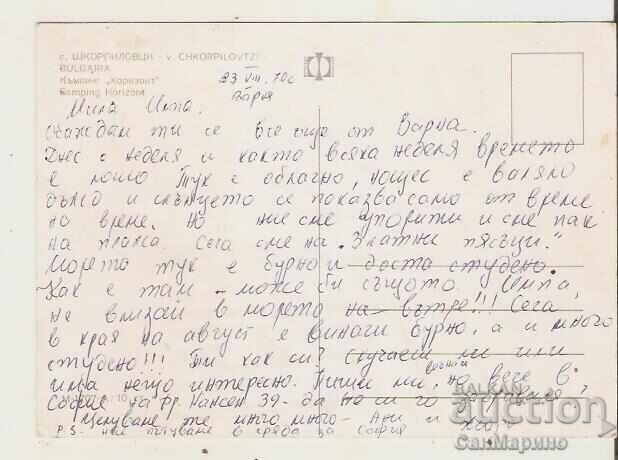 с. ШКОРПИЛОВЦИ - v. CHKORPILOVTZI
BULGARIA
Къмпинг „Хоризонт"
Camping Horizont
23 VIII.
Варна
Мила
ти се все още от Варна.
Днес е неделя и както всяка неделя времето
е лошо. Тук е облачно, нощес е валяло
дъжд и слънцето се показва само от време
на време. Но ние сме упорити и сме пак
на плажа. Сега сме на „Златни пясъци."
Морето тук е бурно и доста студено.
Как е там - може би същото.
не влизай в морето на- вътре!!! Сега
в края на август е винаги бурно, а и много
студено!!! Ти как си? Скучаеш ли или
има нещо интересно. Пиши ми, но вече в
София на Нансен 39 - да
Целуваме те много, много - Ани и
P.S. Ние пътуваме в сряда за София
BALKAN
auction
СанМарино